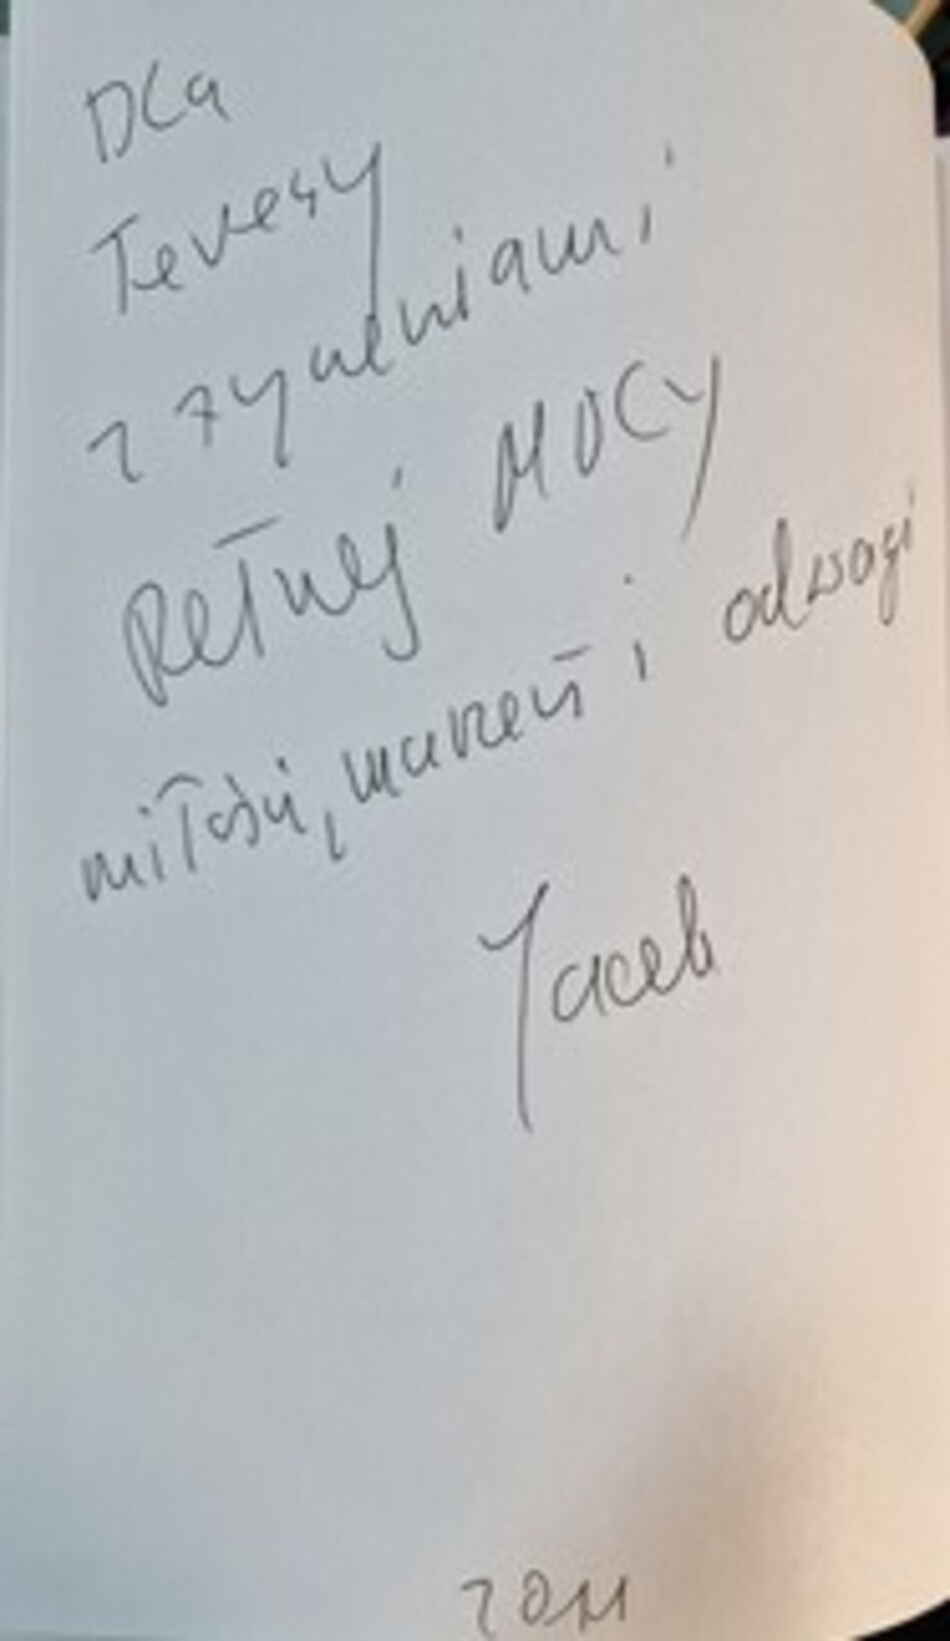 Dla
Teresy
z życzeniami
Pełnej MOCY
miłości, marzeń i odwagi
Jacek
2011